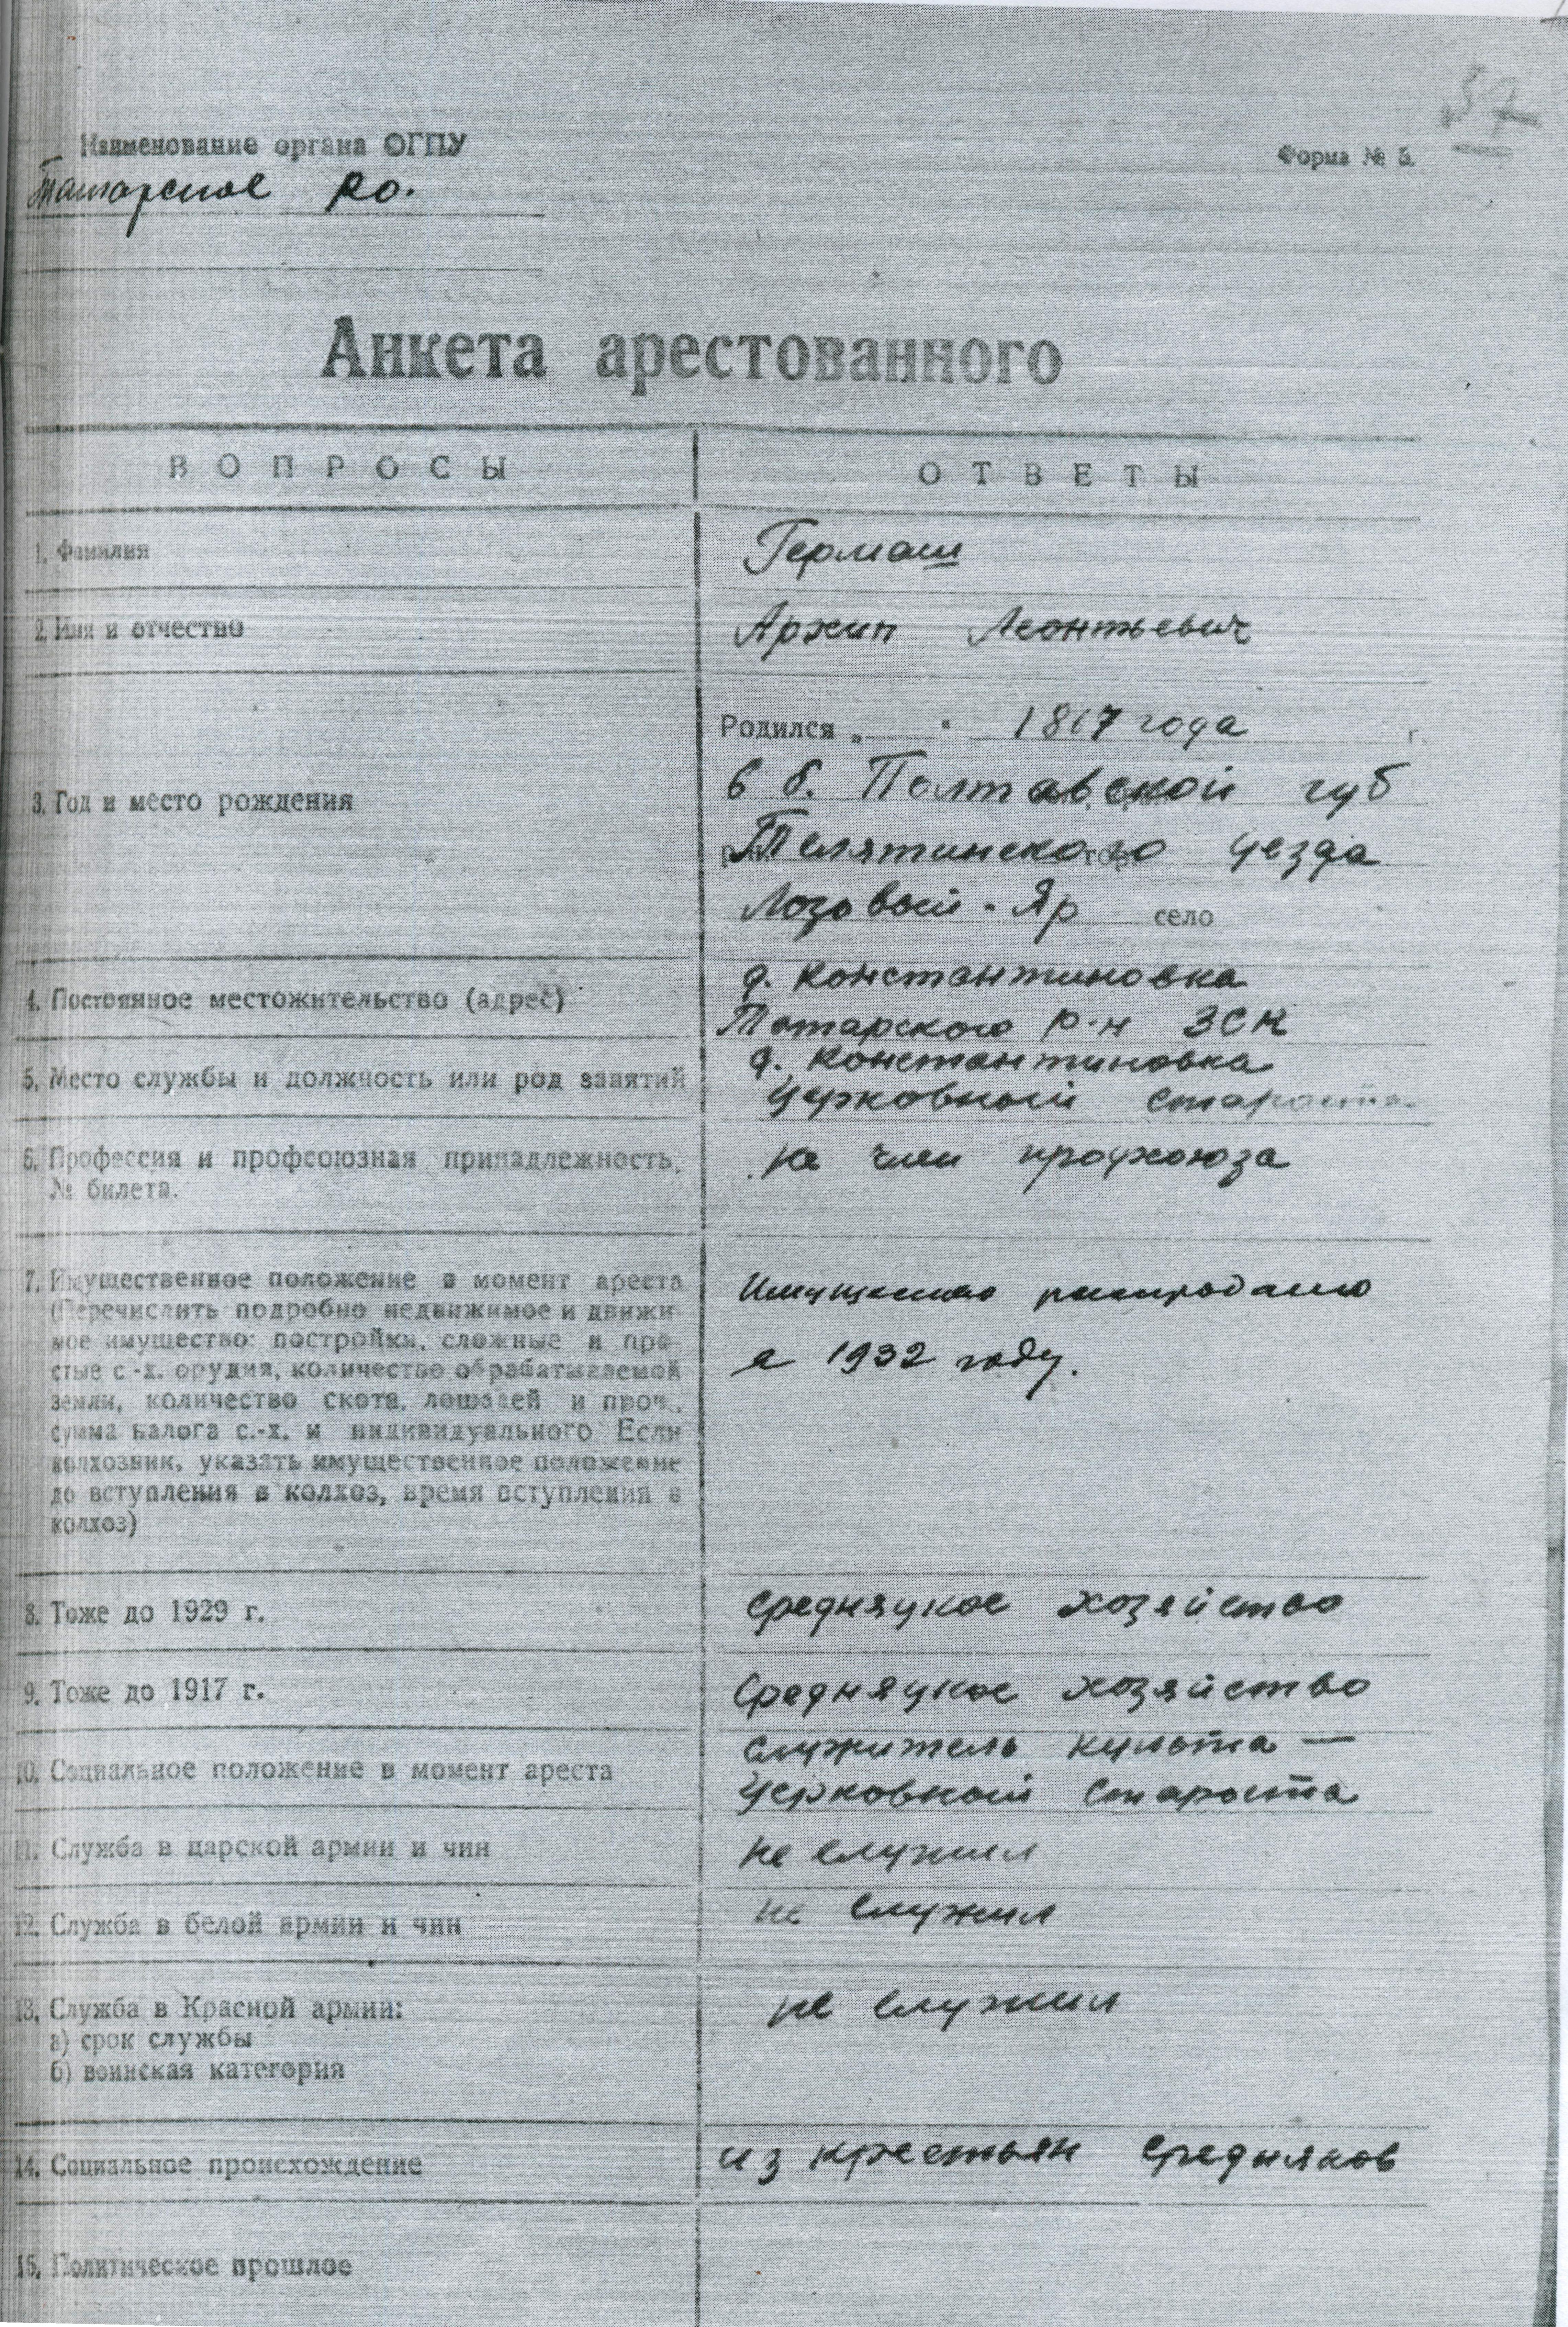 37
Наименование органа ОГПУ
Форма № 5.
Татарское РО.
Анкета арестованного
ВОПРОСЫ
ОТВЕТЫ
1. Фамилия
Гермаш
2. Имя и отчество
Архип Леонтьевич
3. Год и место рождения
Родился „ “ 1867 года г.
в б. Полтавской губ
Телятинского уезда
Лозовый-Яр село
4. Постоянное местожительство (адрес)
д. Константиновка
Татарского р-н ЗСК
5. Место службы и должность или род занятий
д. Константиновка
Церковный староста
6. Профессия и профсоюзная принадлежность,
№ билета.
не член профсоюза
7. Имущественное положение в момент ареста
(Перечислить подробно недвижимое и движи
мое имущество: постройки, сложные и про-
стые с.-х. орудия, количество обрабатываемой
земли, количество скота, лошадей и проч.,
сумма налога с.-х. и индивидуального Если
колхозник, указать имущественное положение
до вступления в колхоз, время вступления в
колхоз)
Имущество распродано
в 1932 году.
8. Тоже до 1929 г.
Средняцкое хозяйство
9. Тоже до 1917 г.
Средняцкое хозяйство
10. Социальное положение в момент ареста
служитель культа —
Церковный староста
11. Служба в царской армии и чин
не служил
12. Служба в белой армии и чин
не служил
13. Служба в Красной армии:
а) срок службы
б) воинская категория
не служил
14. Социальное происхождение
из крестьян средняков
15. Политическое прошлое